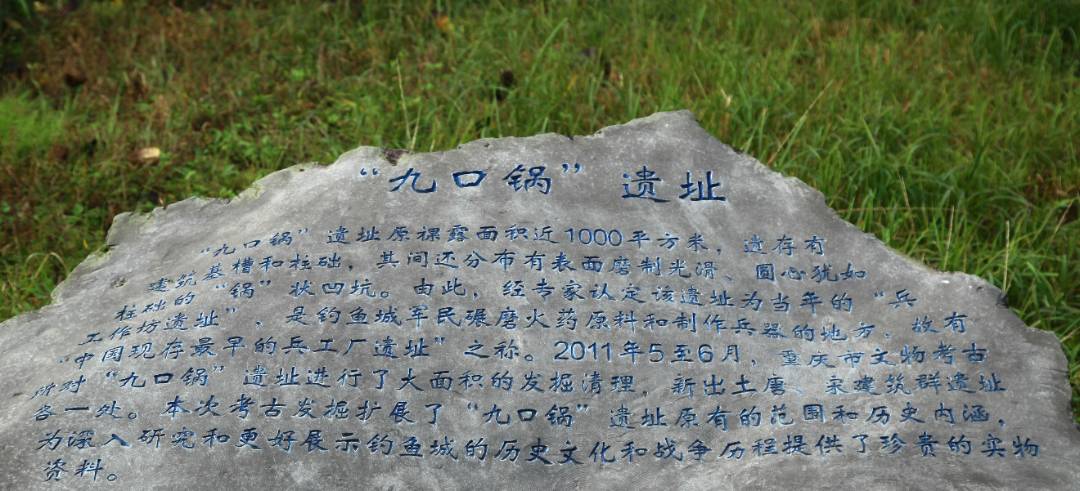 “九口锅”遗址
“九口锅”遗址原裸露面积近1000平方米，遗存有
建筑基槽和柱础，其间还分布有表面磨制光滑、圆心犹如
柱础的“锅”状凹坑。由此，经专家认定该遗址为当年的“兵
工作坊遗址”，是钓鱼城军民碾磨火药原料和制作兵器的地方，故有
“中国现存最早的兵工厂遗址”之称。2011年5至6月，重庆市文物考古
所对“九口锅”遗址进行了大面积的发掘清理，新出土唐、宋建筑群遗址
各一处。本次考古发掘扩展了“九口锅”遗址原有的范围和历史内涵，
为深入研究和更好展示钓鱼城的历史文化和战争历程提供了珍贵的实物
资料。